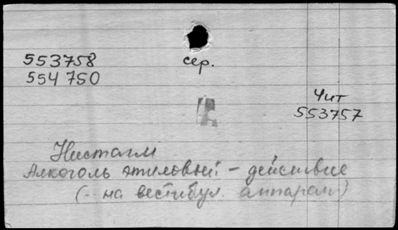 553758
554750
сер.
Чит
553757
Нистагм
Алкоголь этиловый - действие
(-- на вестибул. аппарат)